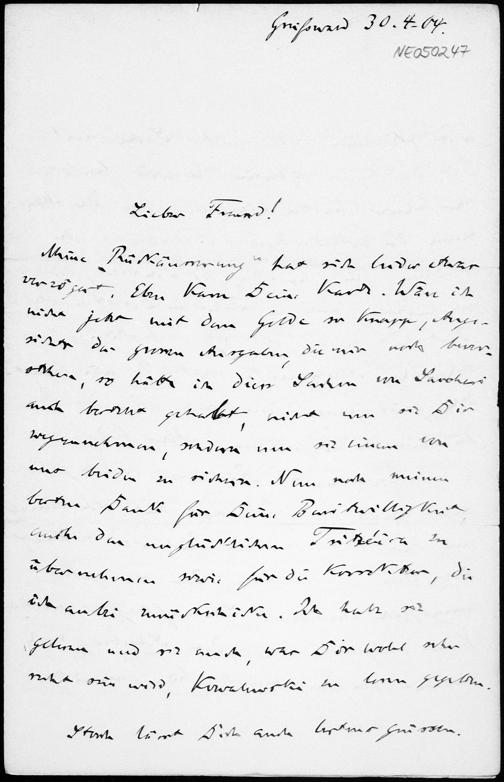 Greifswald 30.4.04.
NE050247
Lieber Freund!
Meine „Rückäusserung“ hat sich leider etwas
verzögert. Eben kam Deine Karte. Wäre ich
nicht jetzt mit dem Gelde so knapp, Ange-
sichts der grossen Ausgaben, die mir noch bevor-
stehen, so hätte ich diese Sachen von
auch bestellt gehabt, nicht um sie Dir
wegzunehmen, sondern um sie einem von
uns beiden zu sichern. Nun noch meinen
besten Dank für Deine Bereitwilligkeit,
auch den unglücklichen zu
übernehmen sowie für die Korrektur, die
ich anbei zurückschicke. Ich habe sie
gelesen und sie auch, was Dir wohl sehr
recht sein wird, Kowalewski zu lesen gegeben.
Storch lässt Dich auch bestens grüssen.